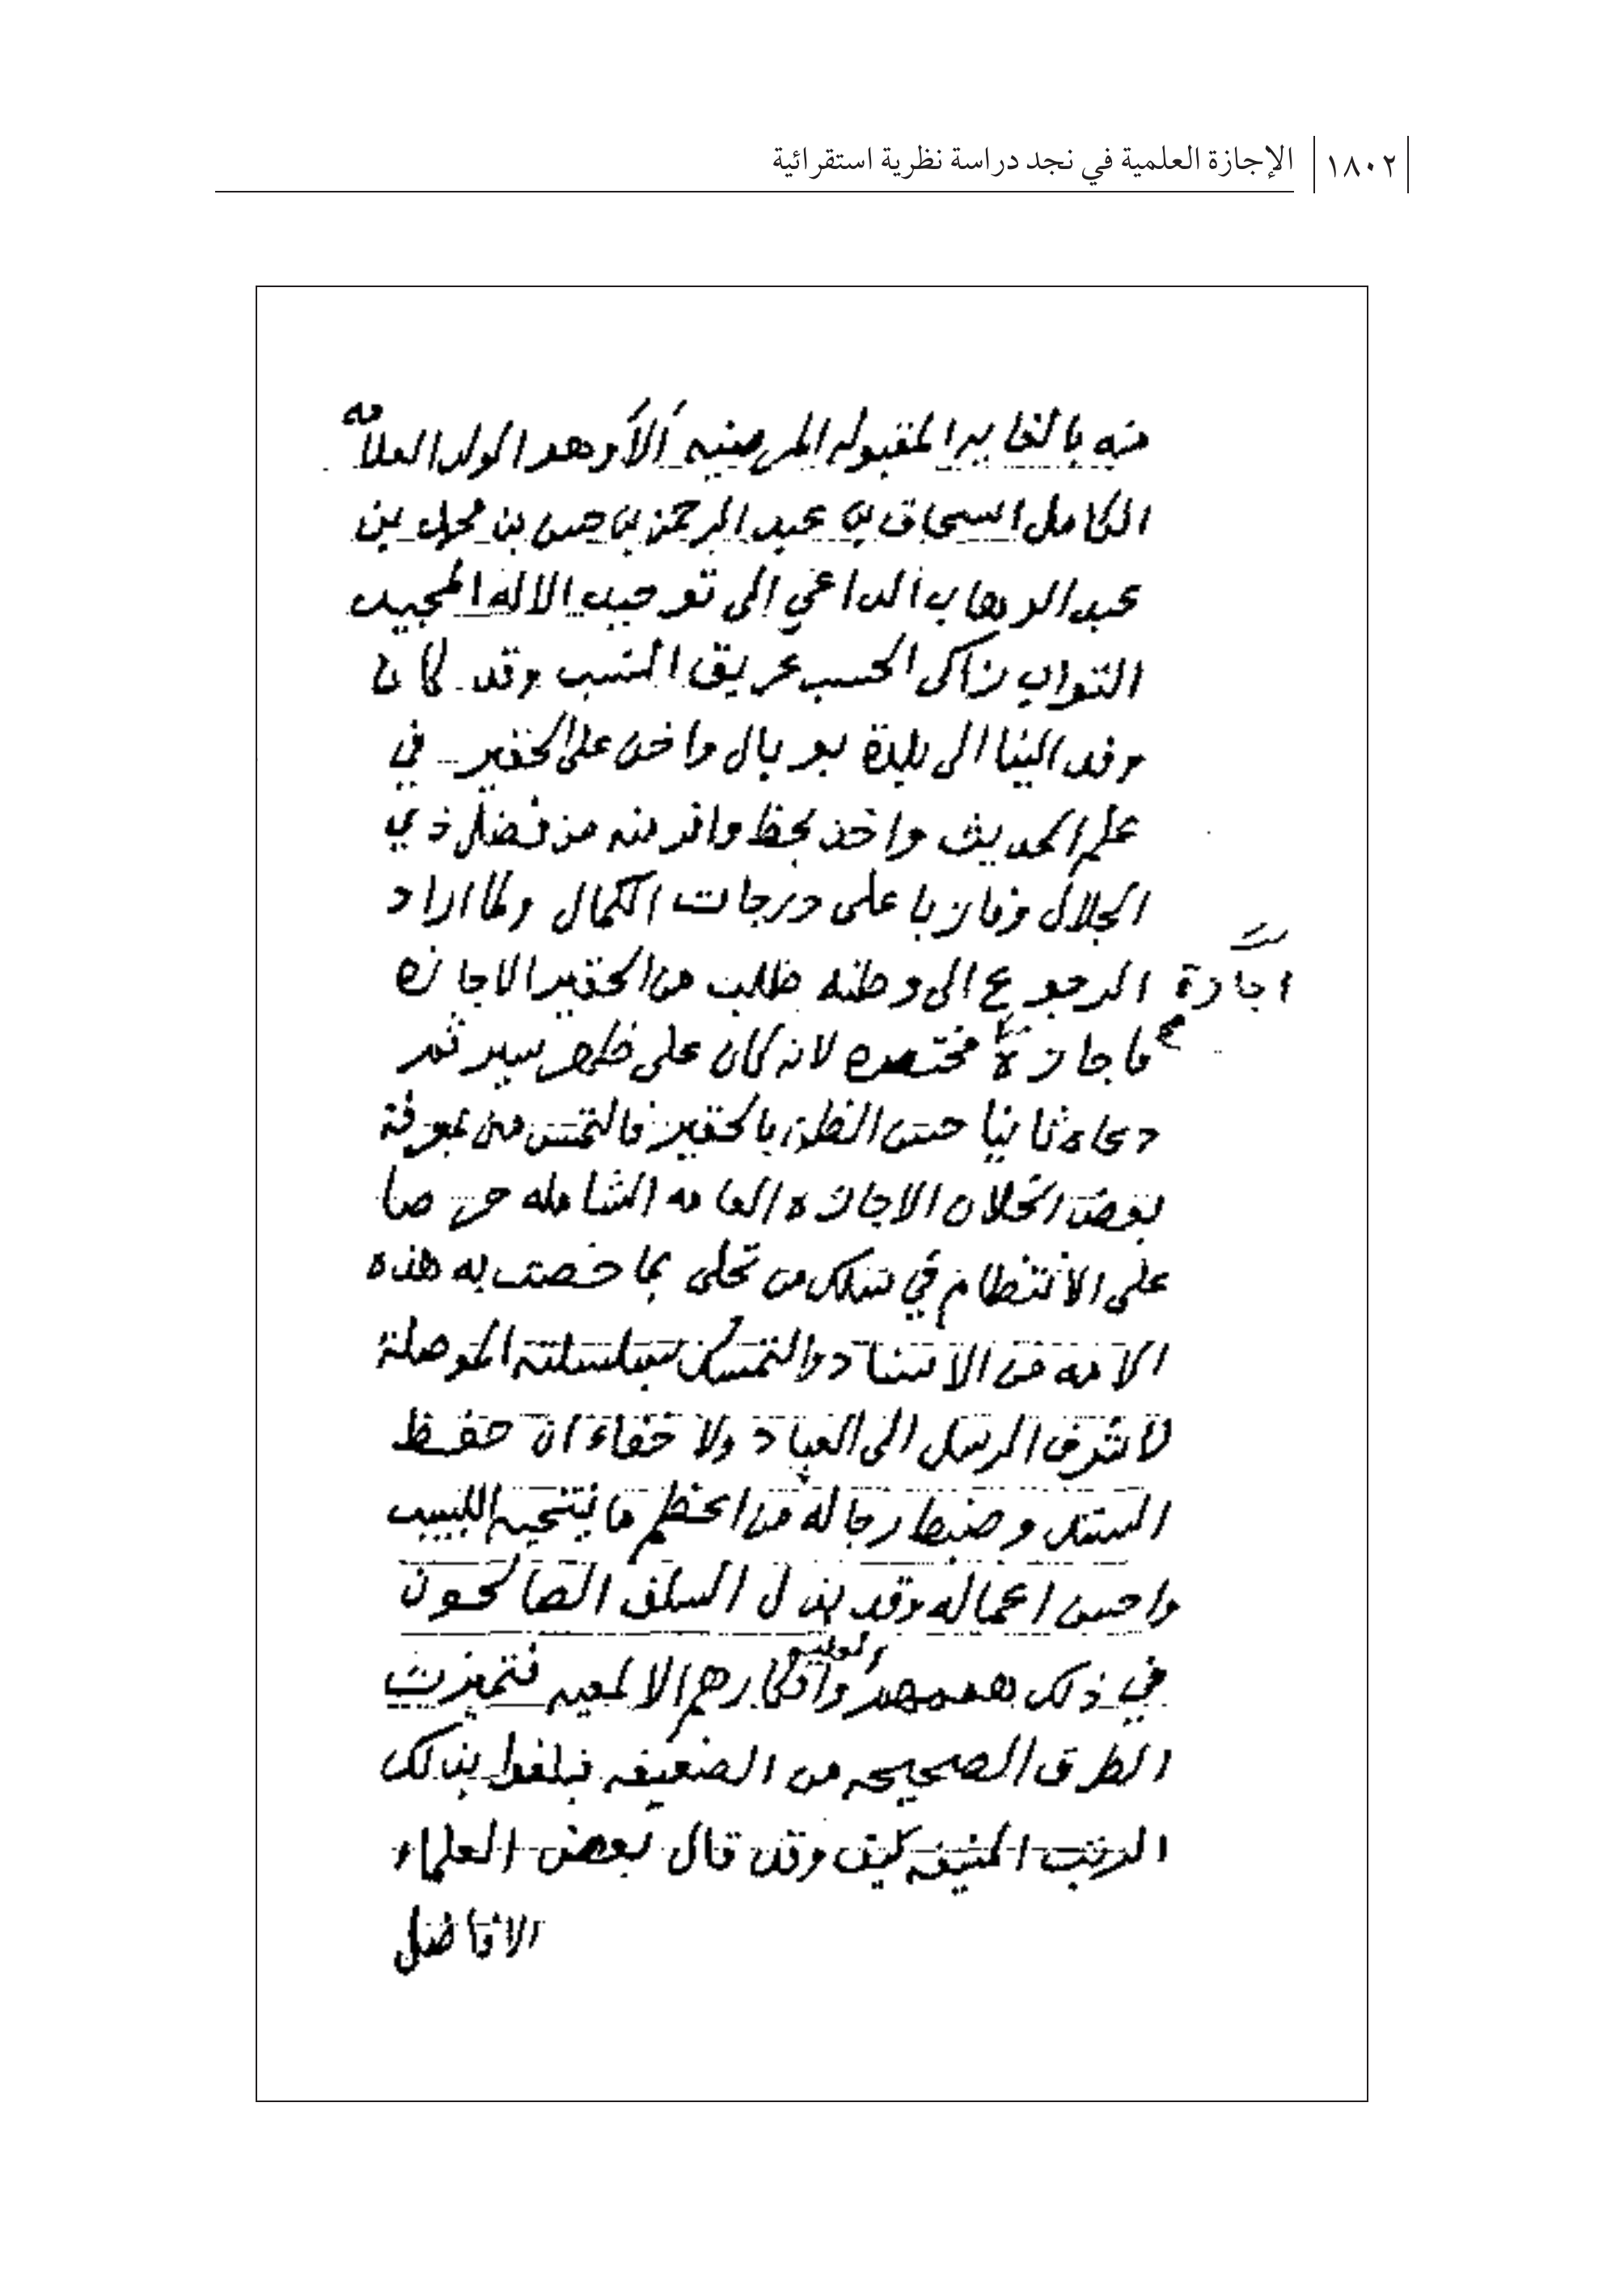 ١٨٠٢ الإجازة العلمية في نجد دراسة نظرية استقرائية
منه بالغايه المقبوله المرضيه ألأوهو الولد العلامه
الكامل اسحاق بن عبد الرحمن بن حسن بن محمد بن
عبد الوهاب الداعي الى توحيد الاله المجيد
التواب زاكى الحسب عريق النسب وقد كان
وفد الينا الى بلدة بوبال واخذ على الحقير في
علم الحديث واخذ بحظ وافر منه من فضل ذي
الجلال وفاز باعلى درجات الكمال ولما اراد
الرجوع الى وطنه طلب من الحقير الاجازه
اجازة
صح
فاجازة مختصره لانه كان على ظهر سير ثم
دعاه ثانيا حسن الظن بالحقير فالتمس من بمعرفة
بعض الخلان الاجازه العامه الشامله حرصا
على الانتظام في سلك من تحلى بما خصت به هذه
الامه من الاسناد والتمسك بسلسلته الموصلة
لاشرف الرسل الى العباد ولا خفاء ان حفظ
السند وضبط رجاله من اعظم ما ينتحيه اللبيب
واحسن اعماله وقد بذل السلف الصالحون
في ذلك هممهم العليه وافكارهم الالمعيه فتميزت
الطرق الصحيحه من الضعيفه فبلغوا بذلك
الرتب المنيفه كيف وقد قال بعض العلماء
الافاضل